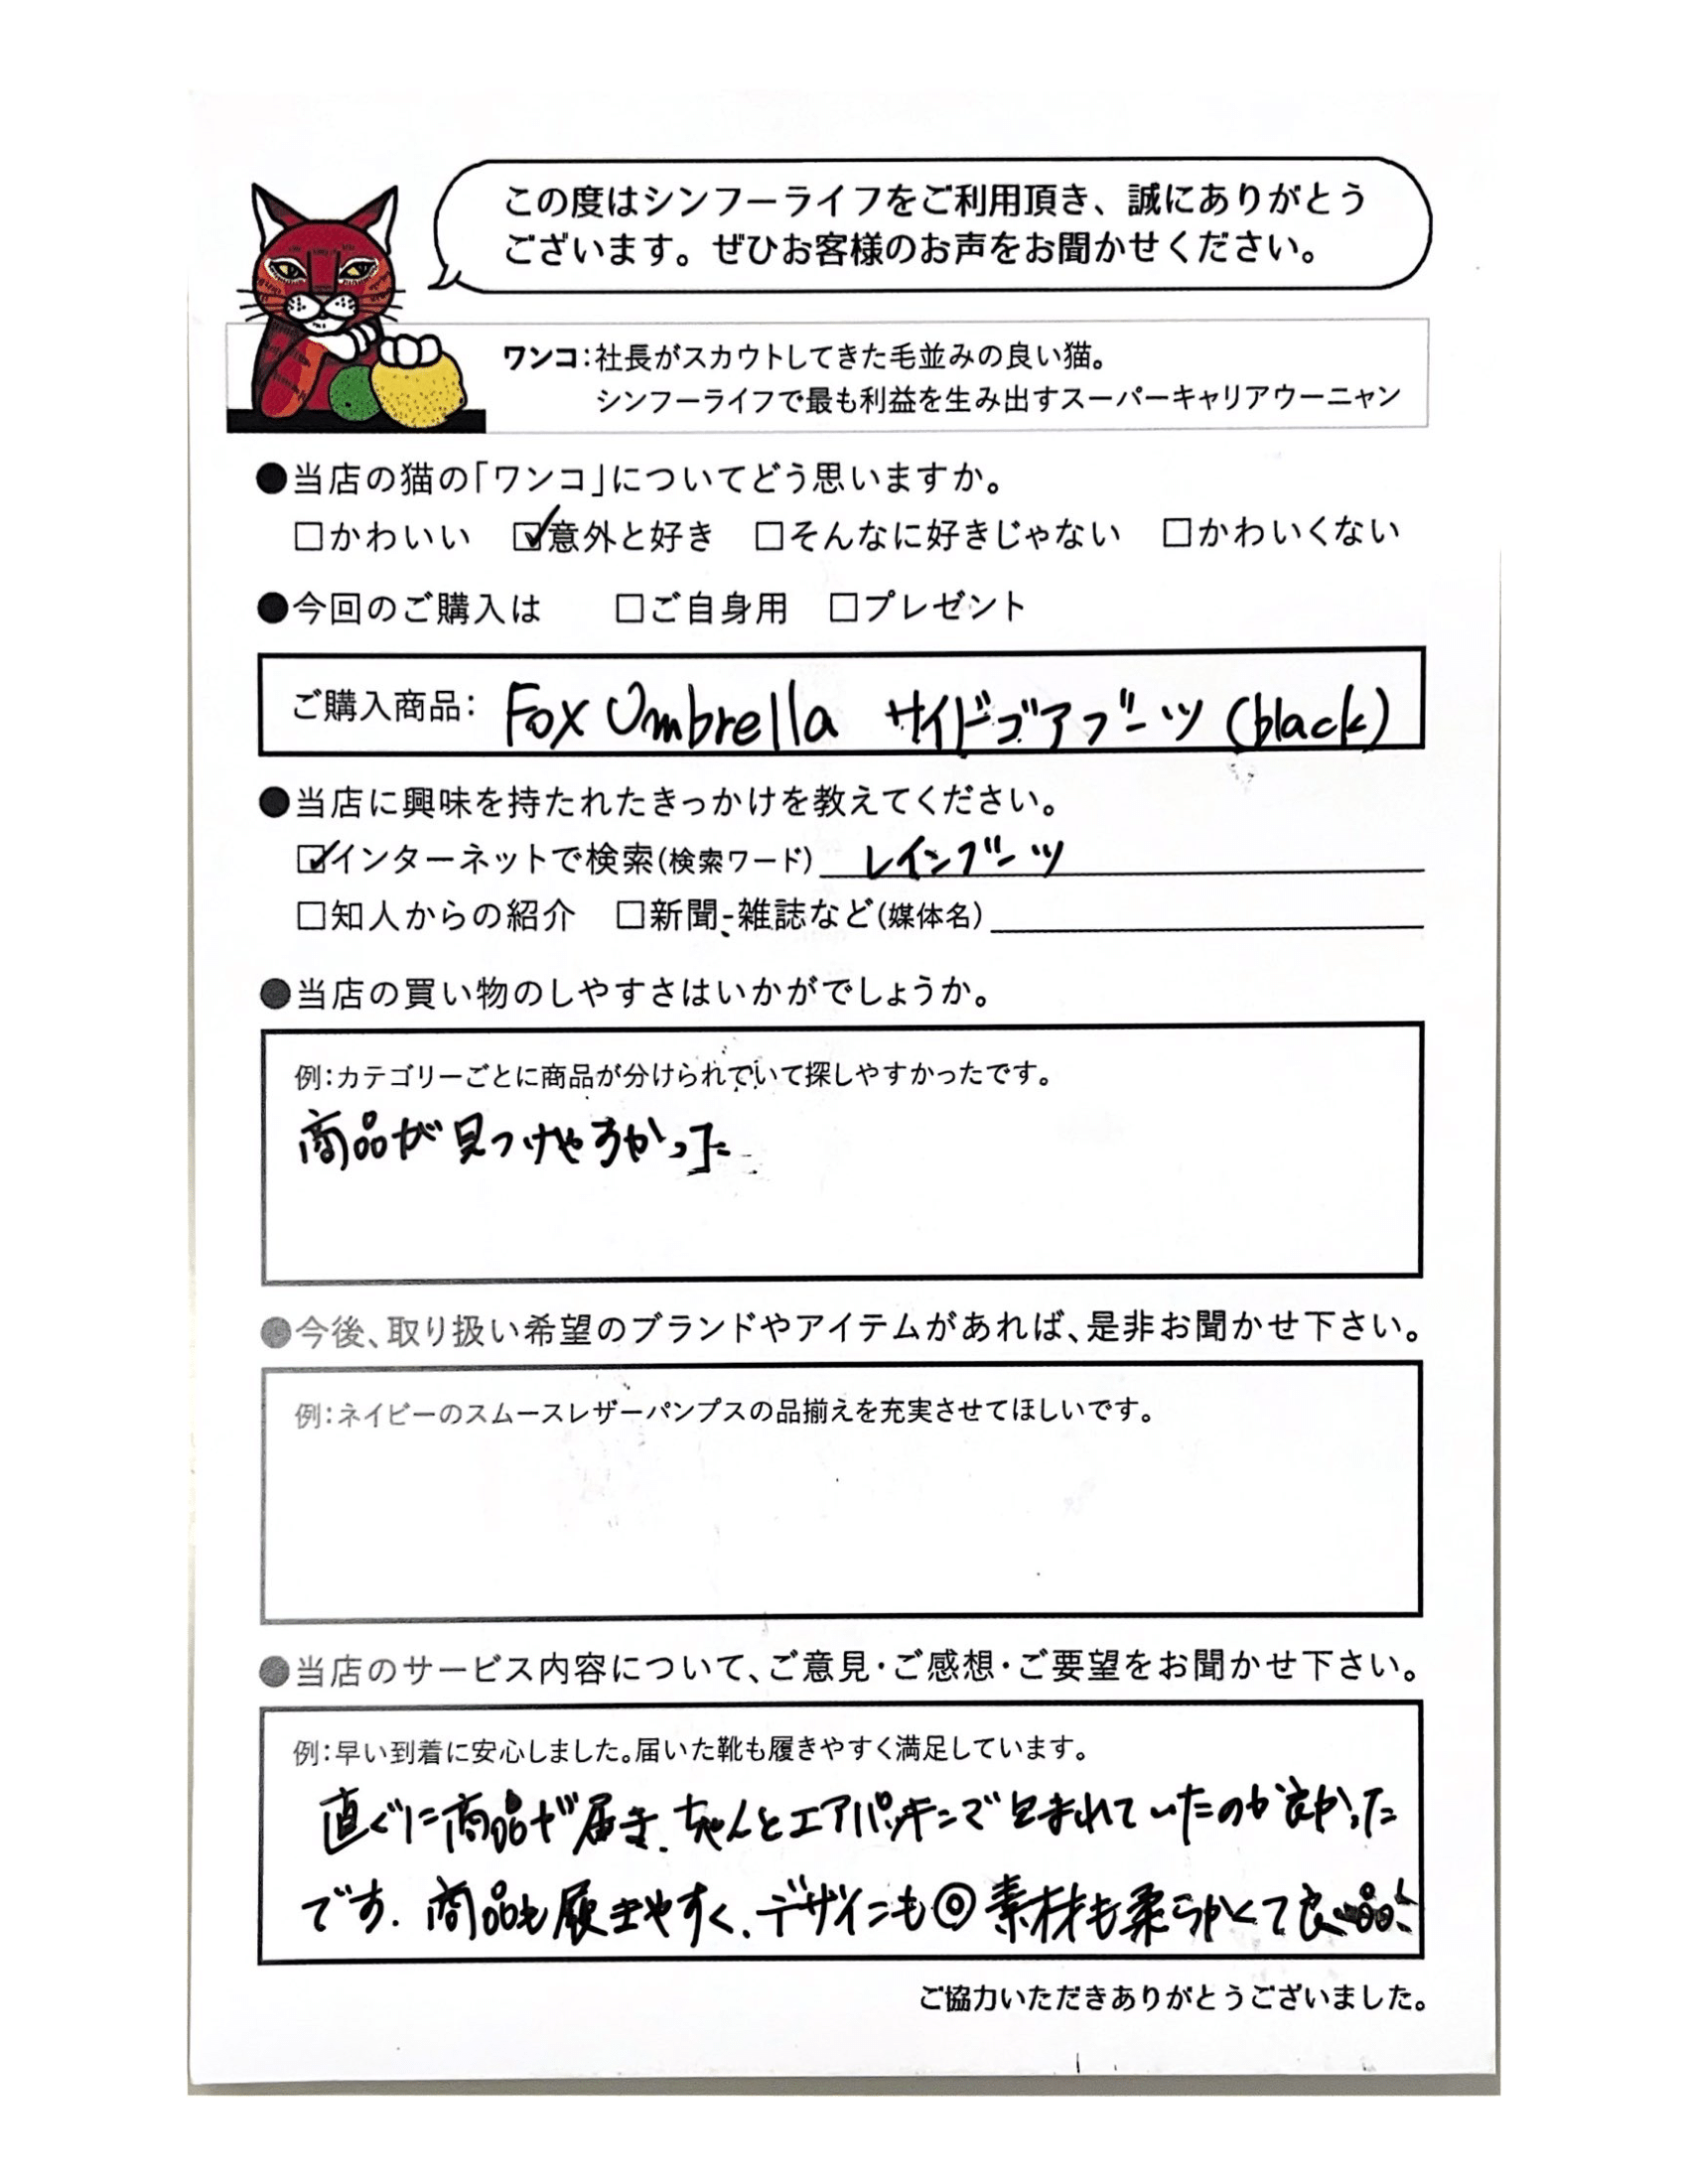 この度はシンフーライフをご利用頂き、誠にありがとう
ございます。ぜひお客様のお声をお聞かせください。
ワンコ：社長がスカウトしてきた毛並みの良い猫。
シンフーライフで最も利益を生み出すスーパーキャリアウーニャン
●当店の猫の「ワンコ」についてどう思いますか。
□かわいい ☑意外と好き □そんなに好きじゃない □かわいくない
●今回のご購入は □ご自身用 □プレゼント
ご購入商品： Fox Umbrella サイドゴアブーツ (black)
●当店に興味を持たれたきっかけを教えてください。
☑インターネットで検索(検索ワード) レインブーツ
□知人からの紹介 □新聞・雑誌など(媒体名)
●当店の買い物のしやすさはいかがでしょうか。
例：カテゴリーごとに商品が分けられていて探しやすかったです。
商品が見つけやすかった
●今後、取り扱い希望のブランドやアイテムがあれば、是非お聞かせ下さい。
例：ネイビーのスムースレザーパンプスの品揃えを充実させてほしいです。
●当店のサービス内容について、ご意見・ご感想・ご要望をお聞かせ下さい。
例：早い到着に安心しました。届いた靴も履きやすく満足しています。
直ぐに商品が届き、ちゃんとエアパッキンで包まれていたのが良かった
です. 商品も履きやすく、デザインも◎素材も柔らかくて良品
ご協力いただきありがとうございました。